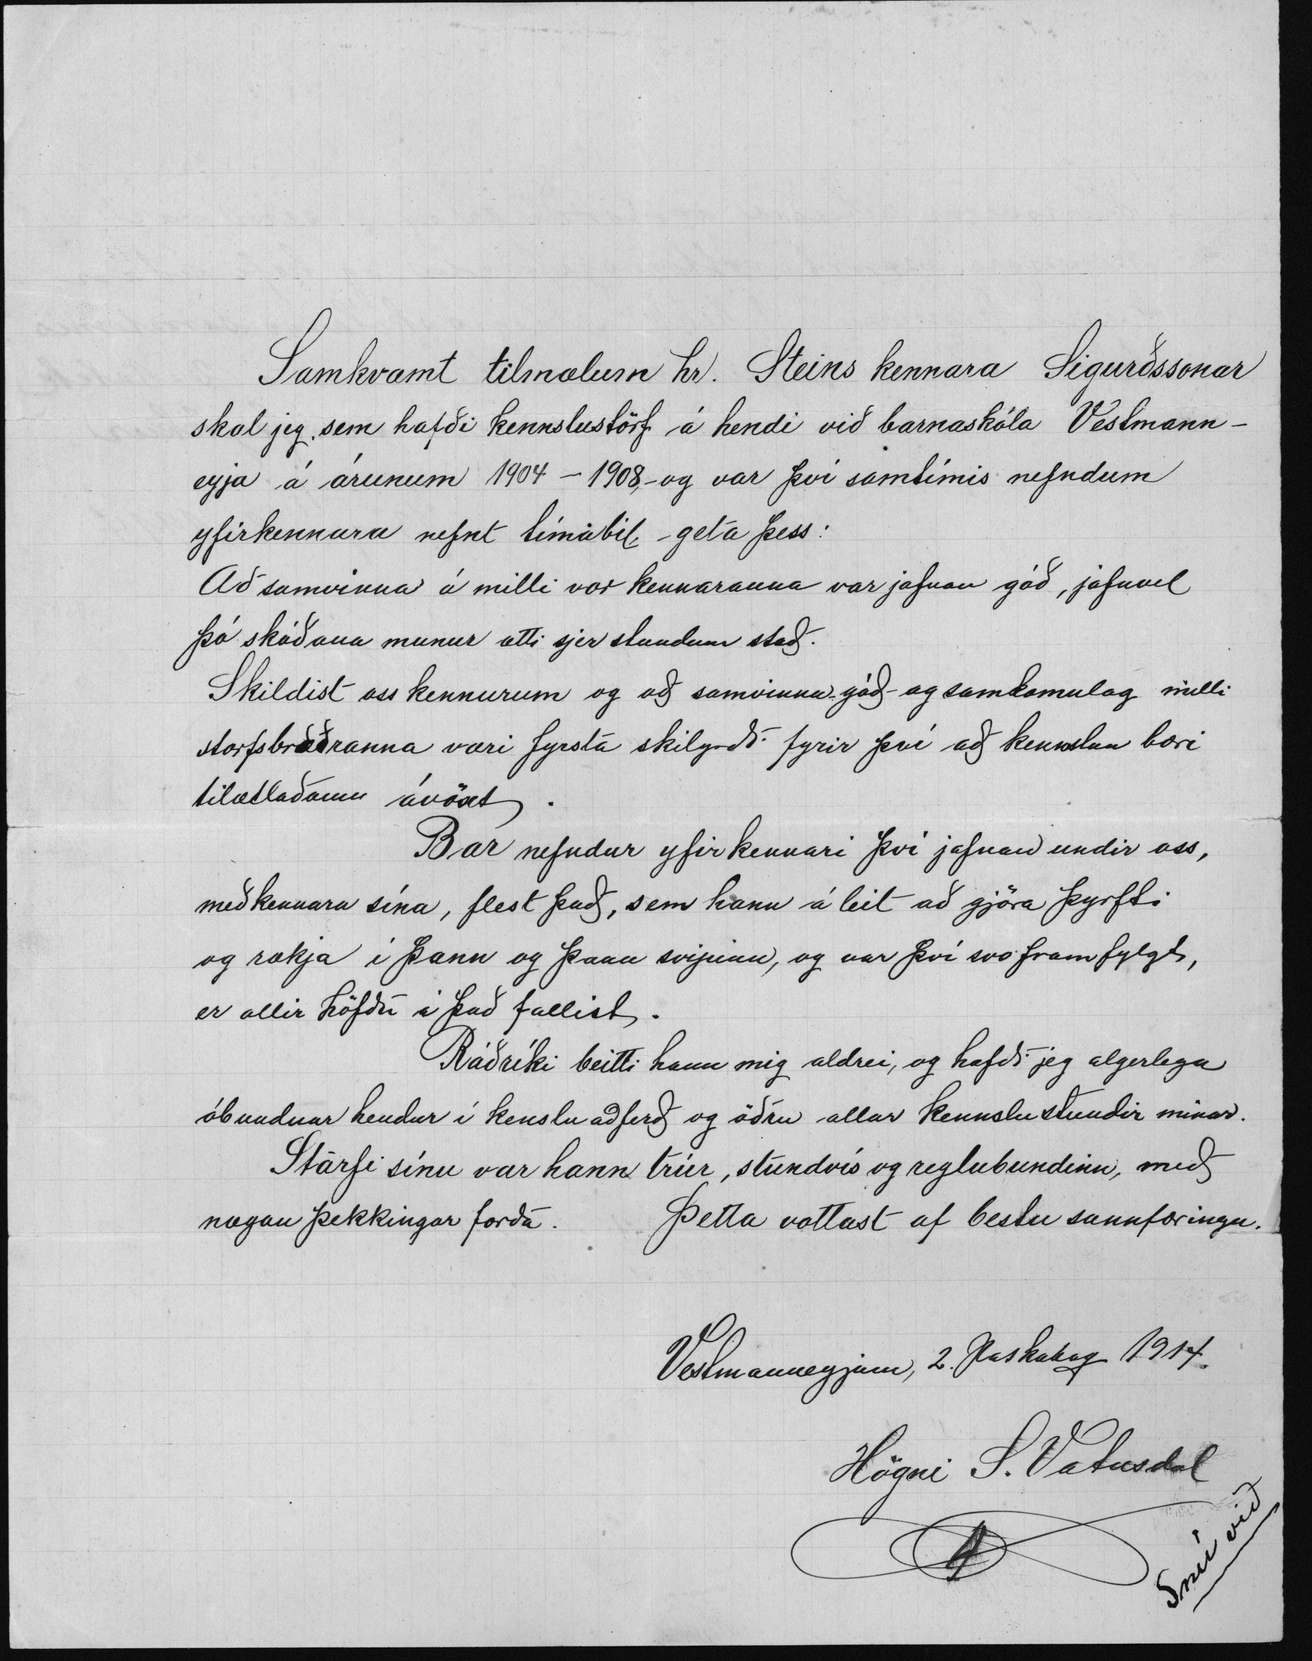 Samkvæmt tilmælum hr. Steins kennara Sigurðssonar
skal jeg, sem hafði kennslustörf á hendi við barnaskóla Vestmann-
eyja á árunum 1904 - 1908, - og var því samtímis nefndum
yfirkennara nefnt tímabil - geta þess:
Að samvinna á milli vor kennaranna var jafnan góð, jafnvel
þó skóðana munur ætti sjer stundum stað.
Skildist oss kennurum og að samvinna góð og samkomulag milli
starfsbræðranna væri fyrsta skilyrði fyrir því að kennslan bæri
tilætlaðann ávöxt.
Bar nefndur yfirkennari því jafnan undir oss,
meðkennara sína, flest það, sem hann áleit að gjöra þyrfti
og rækja í þann og þann svipinn, og var því svo framfylgt,
er allir höfðu á það fallist.
Ráðríki beitti hann mig aldrei, og hafði jeg algerlega
óbundnar hendur í kenslu aðferð og öðru allar kennslustundir mínar.
Starfi sínu var hann trúr, stundvís og reglubundinn, með
nægan þekkingar forða. Þetta vottast af bestu sannfæringu.
Vestmanneyjum, 2. Páskadag 1914.
Högni S. Vatnsdal
Snú við